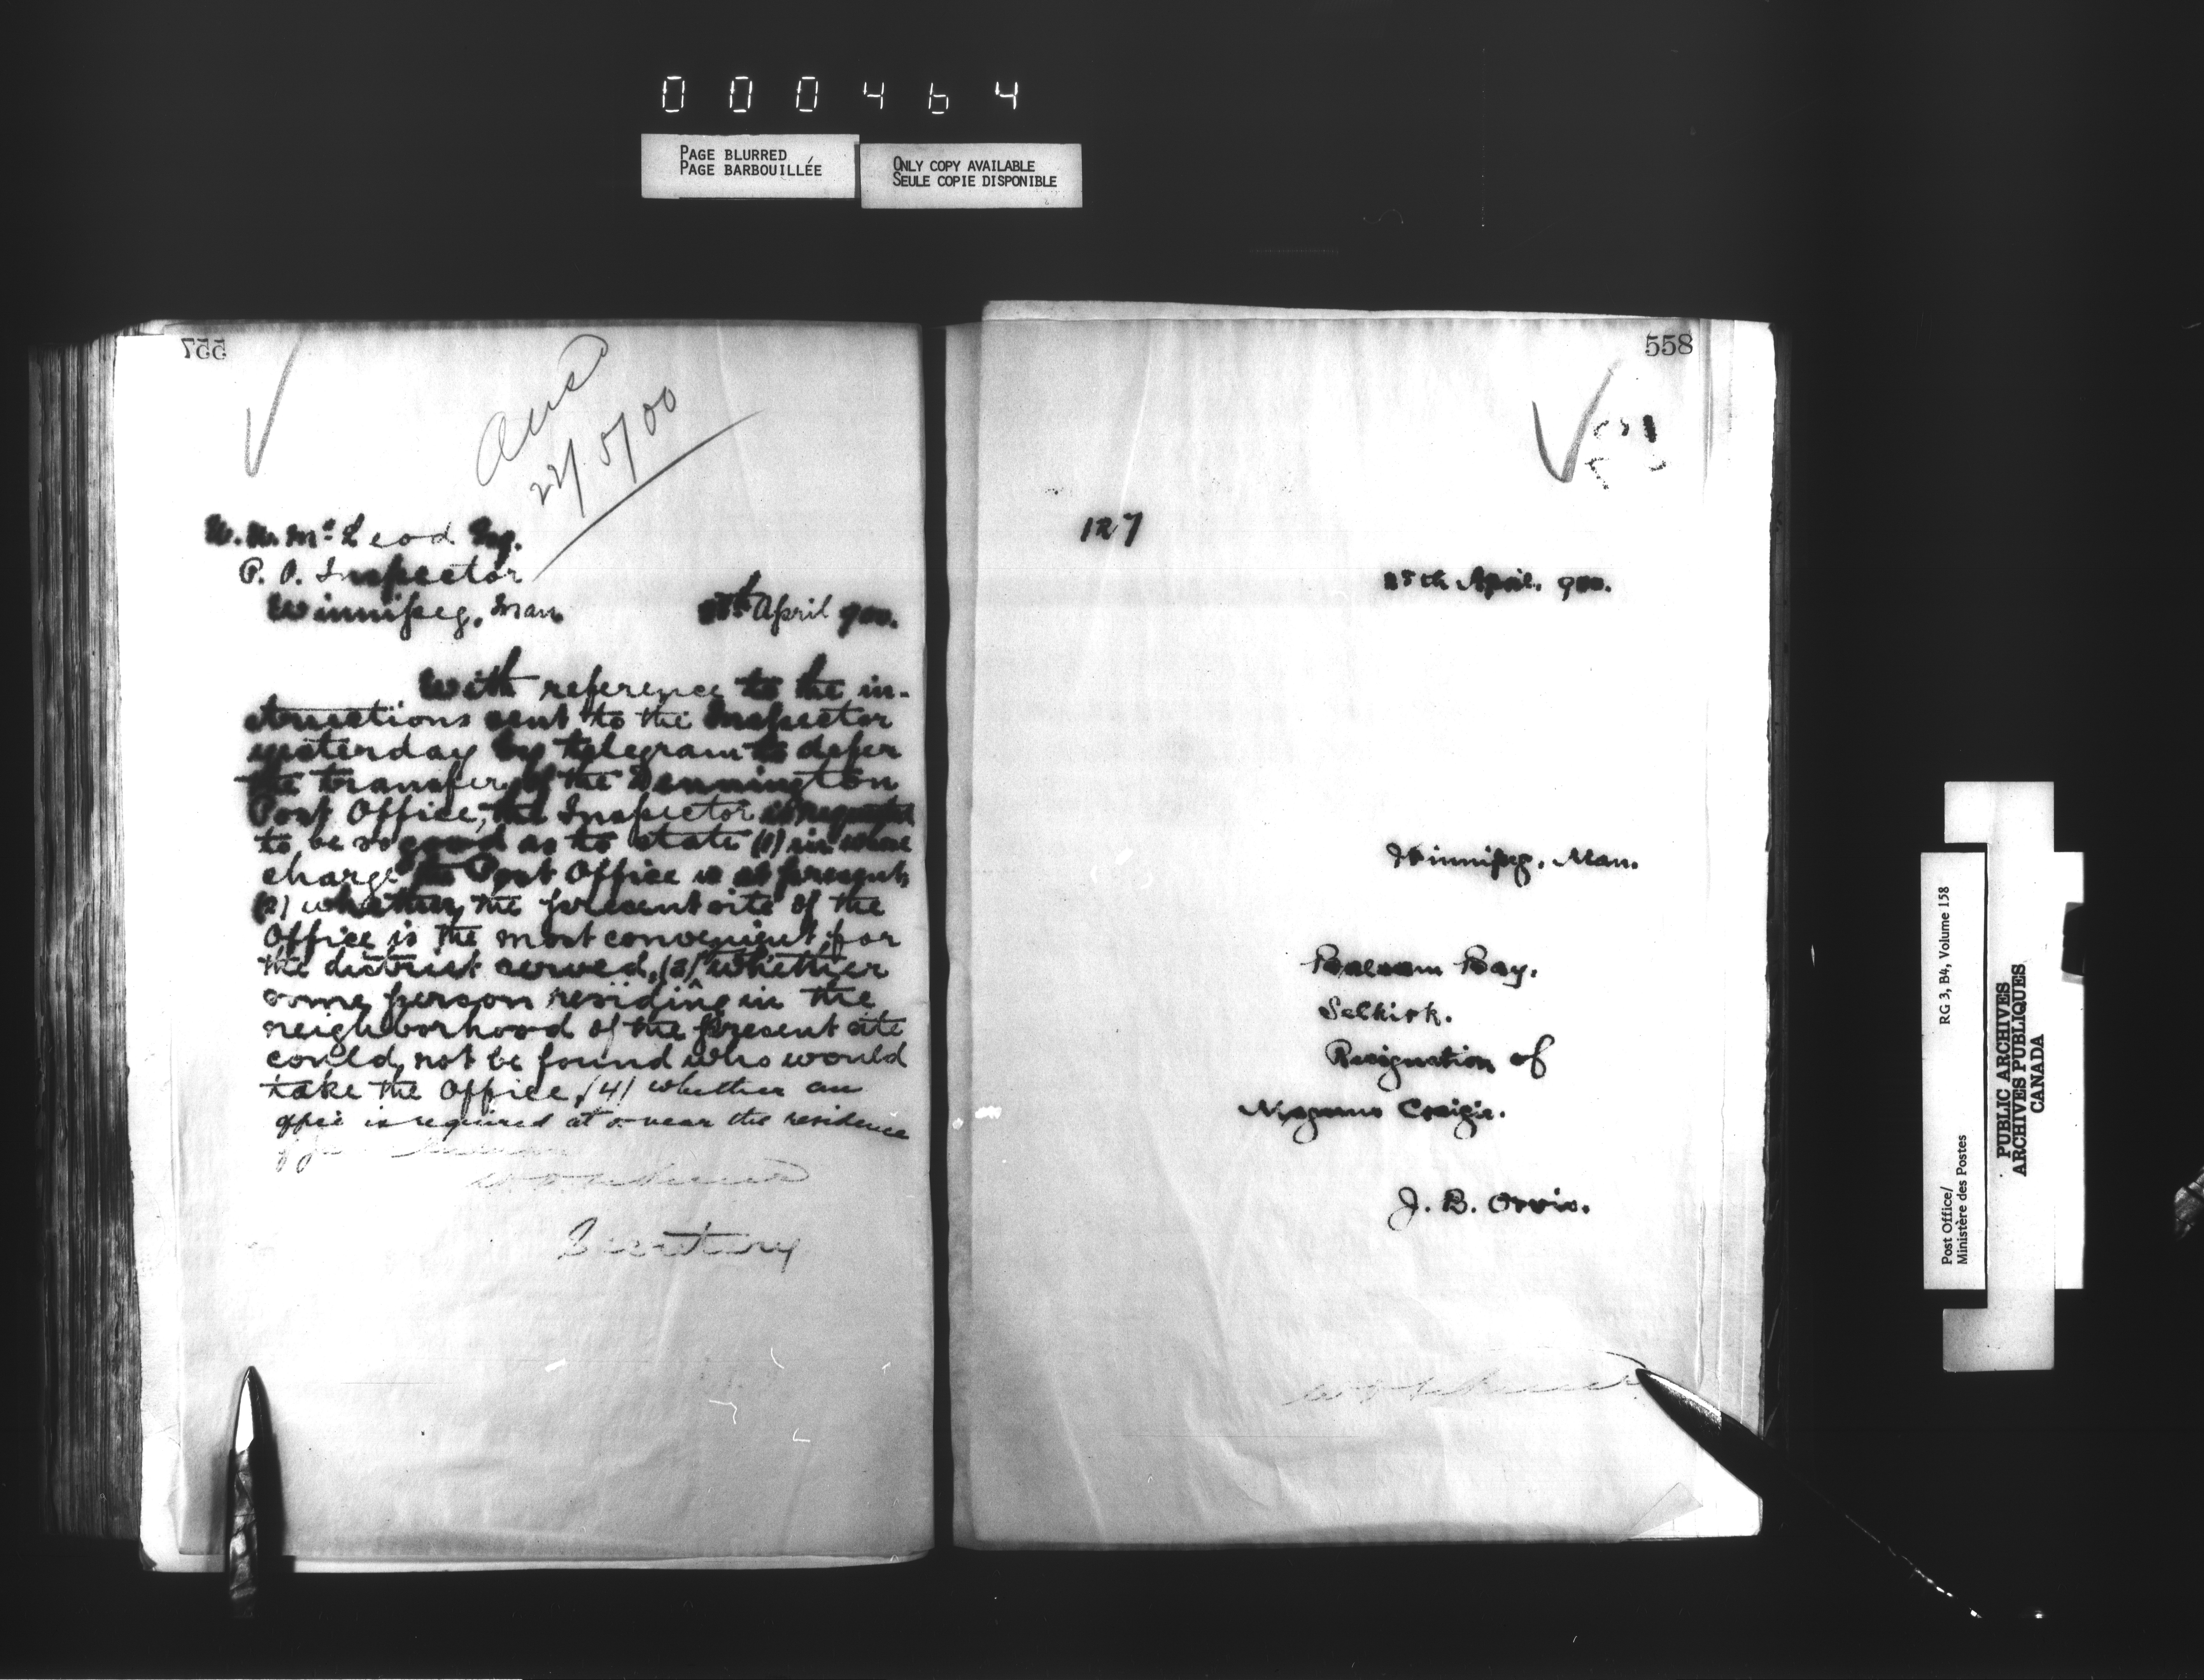 000464
PAGE BLURRED
PAGE BARBOUILLÉE
ONLY COPY AVAILABLE
SEULE COPIE DISPONIBLE
557
Ans
22/5/00
W. W. McLeod Esq.
P. O. Inspector
Winnipeg, Man
April 900.
With reference to the in-
structions sent to the Inspector
yesterday by telegram to defer
the transfer of the Dennington
Post Office, the Inspector is requested
to be so good as to state (1) in whose
charge the Post Office is at present,
(2) whether the present site of the
Office is the most convenient for
the district served, (3) whether
some person residing in the
neighborhood of the present site
could not be found who would
take the Office, (4) whether an
office is required at or near the residence
of
Secretary
558
127
25th April. 900.
Winnipeg. Man.
Balsam Bay.
Selkirk.
Resignation of
Magnus Craigie.
J. B. Orvis.
Post Office/
Ministère des Postes
RG 3, B4, Volume 158
PUBLIC ARCHIVES
ARCHIVES PUBLIQUES
CANADA